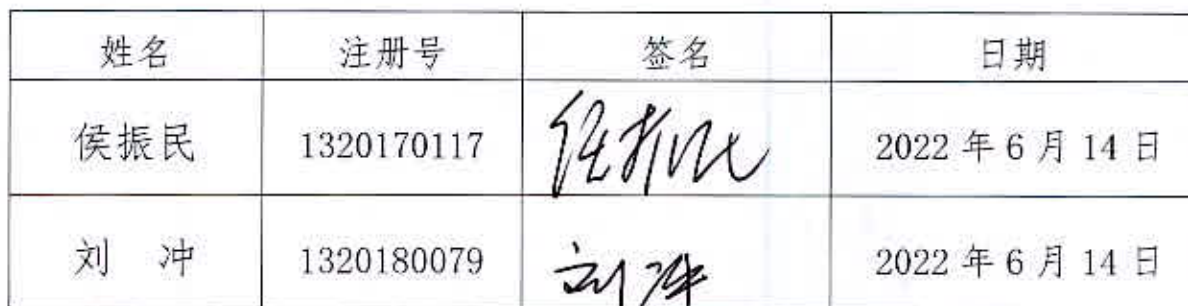 姓名 注册号 签名 日期
侯振民 1320170117 侯振民 2022年6月14日
刘 冲 1320180079 刘冲 2022年6月14日